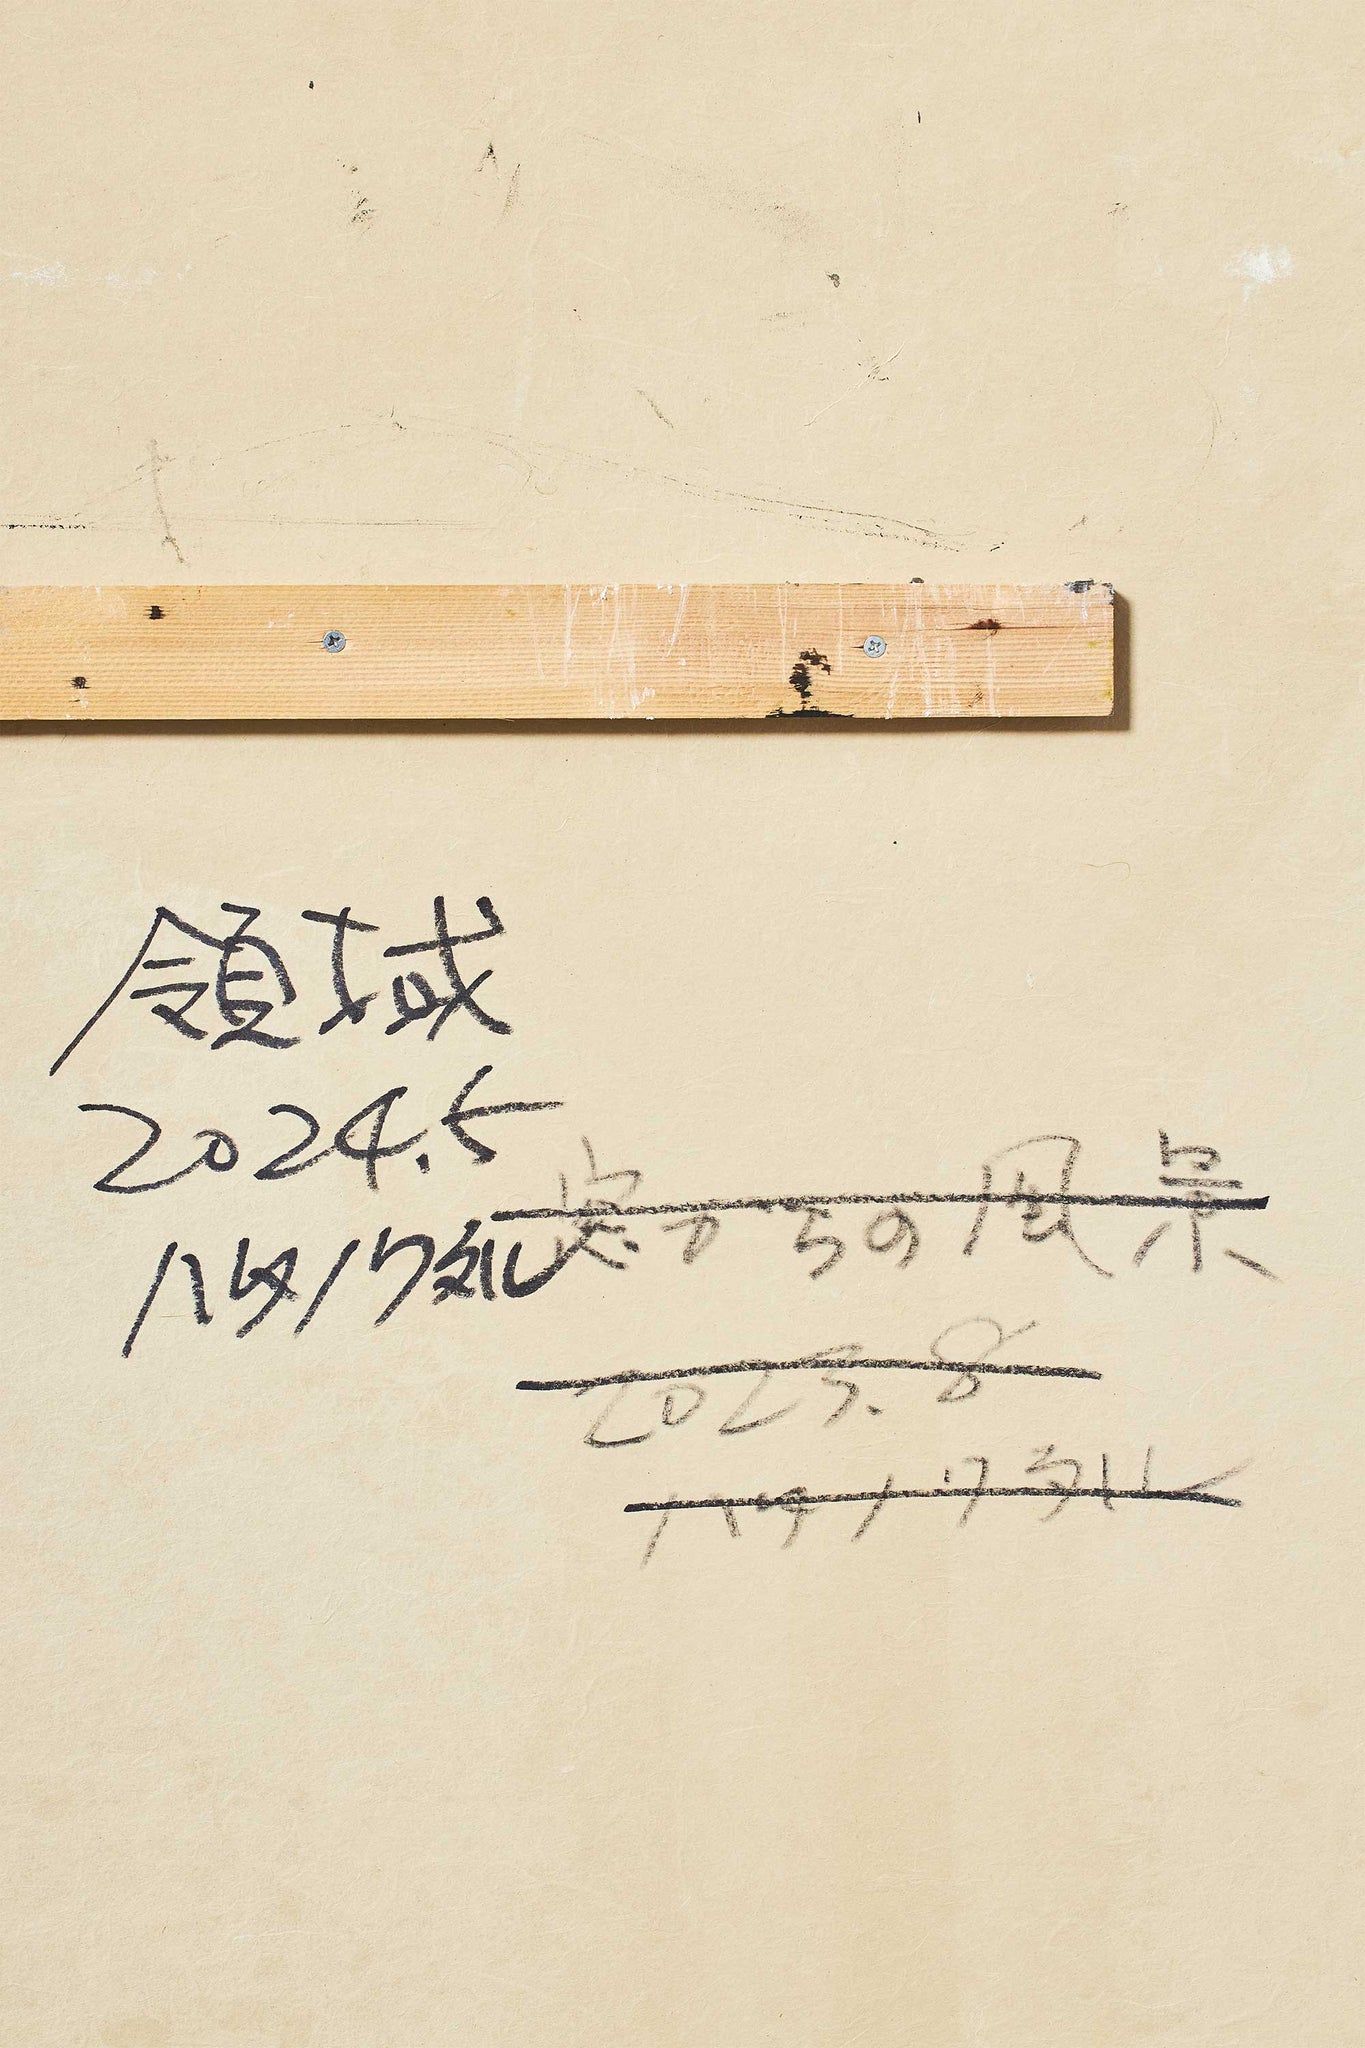 領域
2024.5
ハタノワタル
窓からの風景
2023.8
ハタノワタル